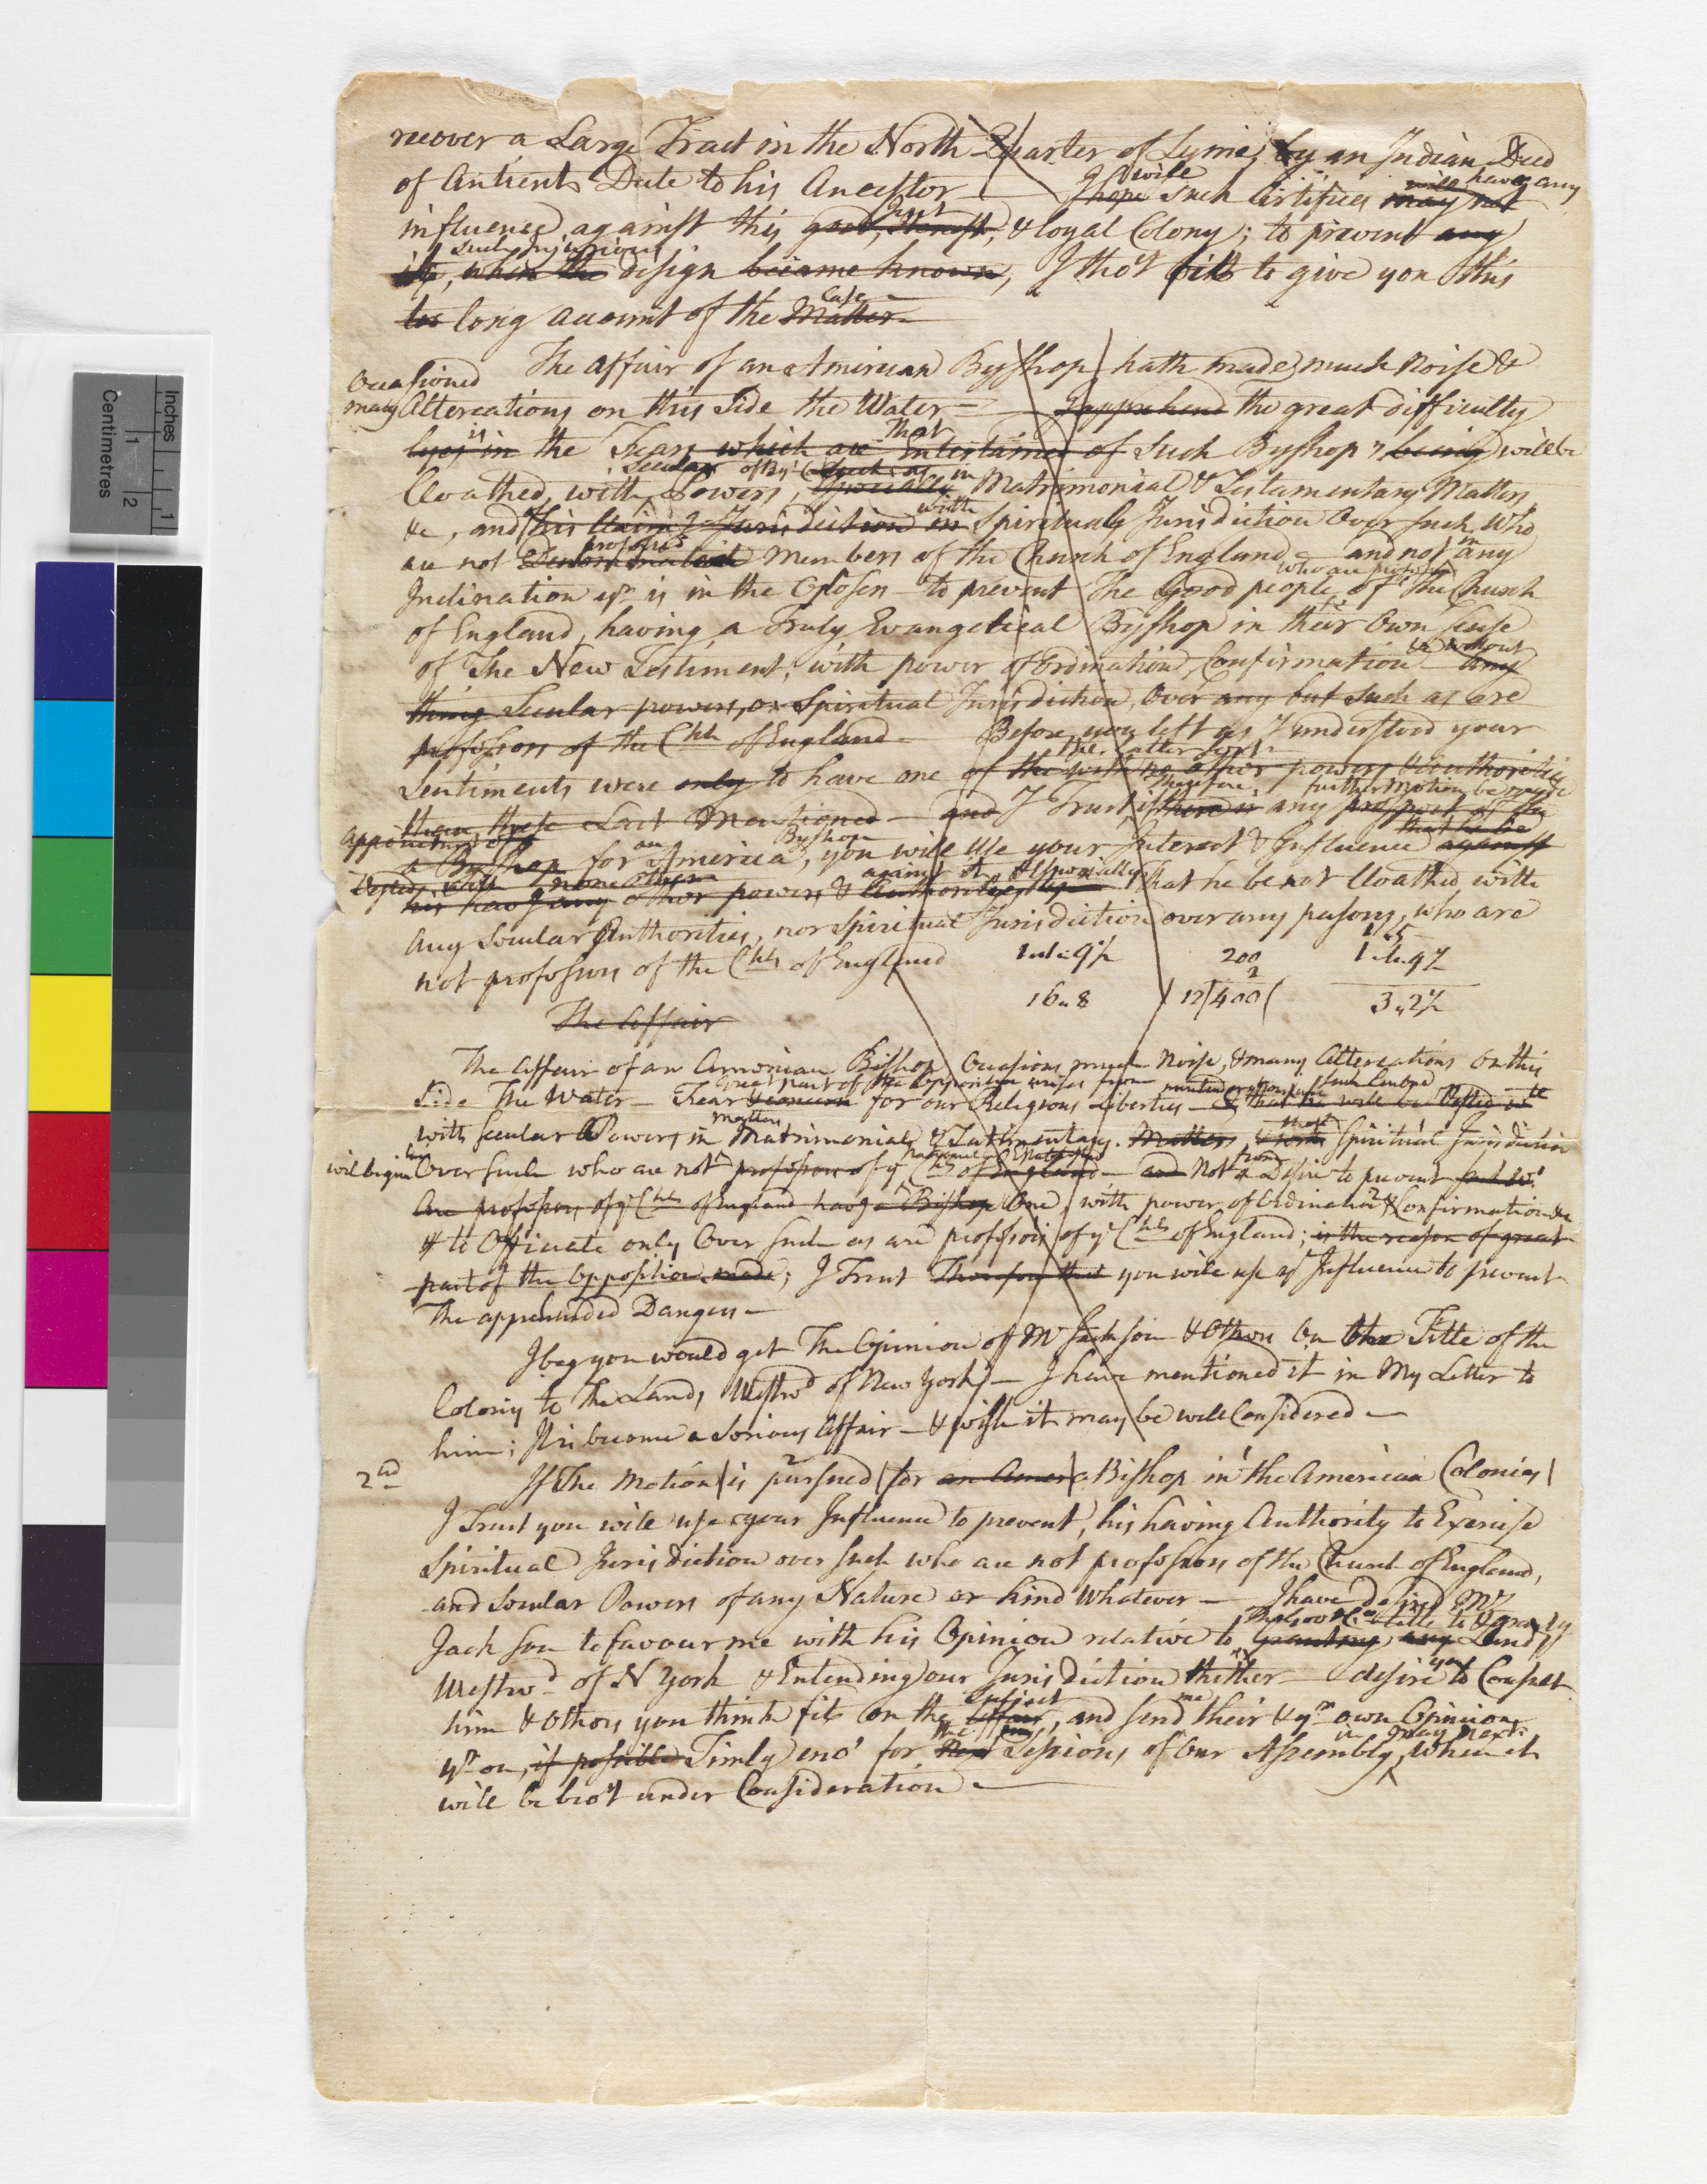 recover a Large Tract in the North Quarter of Lyme, by an Indian Deed
of Antient Date to his Ancestor — I hope will such Artifices may not will have any
influence against this good, Honest, Just & loyal Colony; to prevent any
such Injurious its, when the design became known, I tho't fit to give you this
too long account of the Matter Case —
The affair of an American Bysshop hath made much Noise &
Occasioned many Altercations on this Side the Water — I apprehend the great difficulty
lyes in is the Fears which are Entertained that of Such Bysshop's being will be
Cloathed with Secular Powers, Such as Especially in Matrimonial & Testamentary Matters
&c, and his Claim of Jurisdiction in with Spiritual Jurisdiction Over such who
are not professed Members of the Church of England, and not in any
Inclination yt is in the to prevent The Good people who are of The Church
of England, having a Truly Evangelical Bysshop in their Own Sense
of The New Testiment, with power of Ordination, Confirmation &c without any
thing Secular powers, or Spiritual Jurisdiction, Over any but such as are
professors of the Chh of England — Before you left us I understood your
Sentiments were only to have one of the latter sort with no other powers & Authorities
than these Last Mentioned — and I Trust, Therefore, if there is any further Motion be made prospect of the
appointment of a Bysshop for an America Bysshop, you will Use your Interest & Influence against that he be
Vested with none other his having any other powers & Authority against it, & Especially That he be not Cloathed with
any Secular Authorities, nor Spiritual Jurisdiction over any persons, who are
not professors of the Chh of England
16 " 8
200
2
12)400(
3 " 2½
The Affair
The Affair of an American Bishop Occasions much Noise, & many Altercations On this
Side The Water — Fear & concern great part of the Opposition arises from for our Religious Liberties — & that he will be Vested with
with Secular Powers in Matrimonial matters & Testimentary Matters, & with that Spiritual Jurisdiction
will begin Over such who are not professors of ye Chh of England — and Not from a Desire to prevent such wo
Are professors of ye Chh of England having a Bishop One, with power of Ordination & Confirmation &c
& to Officiate only Over such as are professors of ye Chh of England; is the reason of great
part of the Opposition made; I Trust Therefore that you will use yr Influence to prevent
The apprehended Dangers —
I beg you would get The Opinion of Mr Jackson & Others On the Title of the
Colony to The Lands Westwd of New York — I have mentioned it in My Letter to
him; It is become a Serious Affair — & wish it may be well Considered —
2nd If The Motion is pursued for an Amer a Bishop in the American Colonies
I Trust you will use your Influence to prevent, his having Authority to Exercise
Spiritual Jurisdiction over such who are not professors of the Church of England,
and Secular Powers of any Nature or kind Whatever — I have desired Mr
Jackson to favour me with his Opinion relative to The Govr & Co. title to & granting Granting any Lands
Westwd of N York & Extending our Jurisdiction thither — desire you to Consult
him & Others you think fit on the Affair Subject, and send me their & yr own Opinions
yr on, if possible Timely eno' for Next the Sessions of Our Assembly in May next, when it
will be bro't under Consideration —
Inches
1
Centimetres
1
2